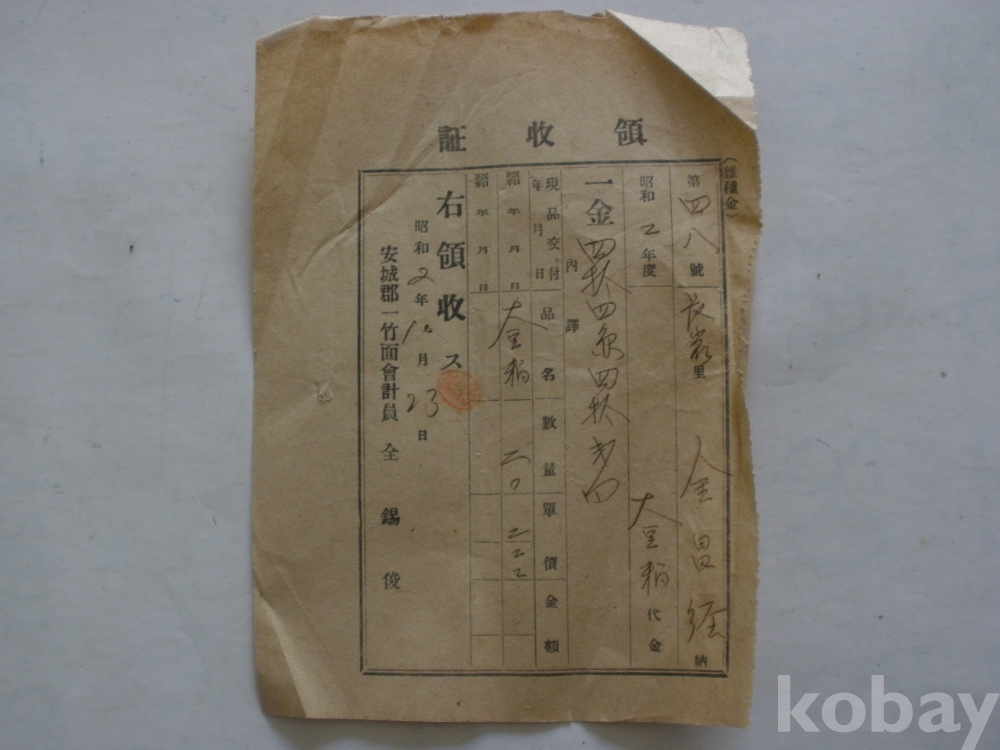 領收証
(雜種金)
第四八號 長岩里 金昌經 納
昭和2年度 大豆粕代金
一金四拾四円四拾戔也
內譯
現品交付年月日 品名 數量 單價 金額
昭 年 月 日 大豆粕 二〇 二二二
昭 年 月 日
右領收ス
昭和2年 月23日
安城郡一竹面會計員 全錫俊
kobay